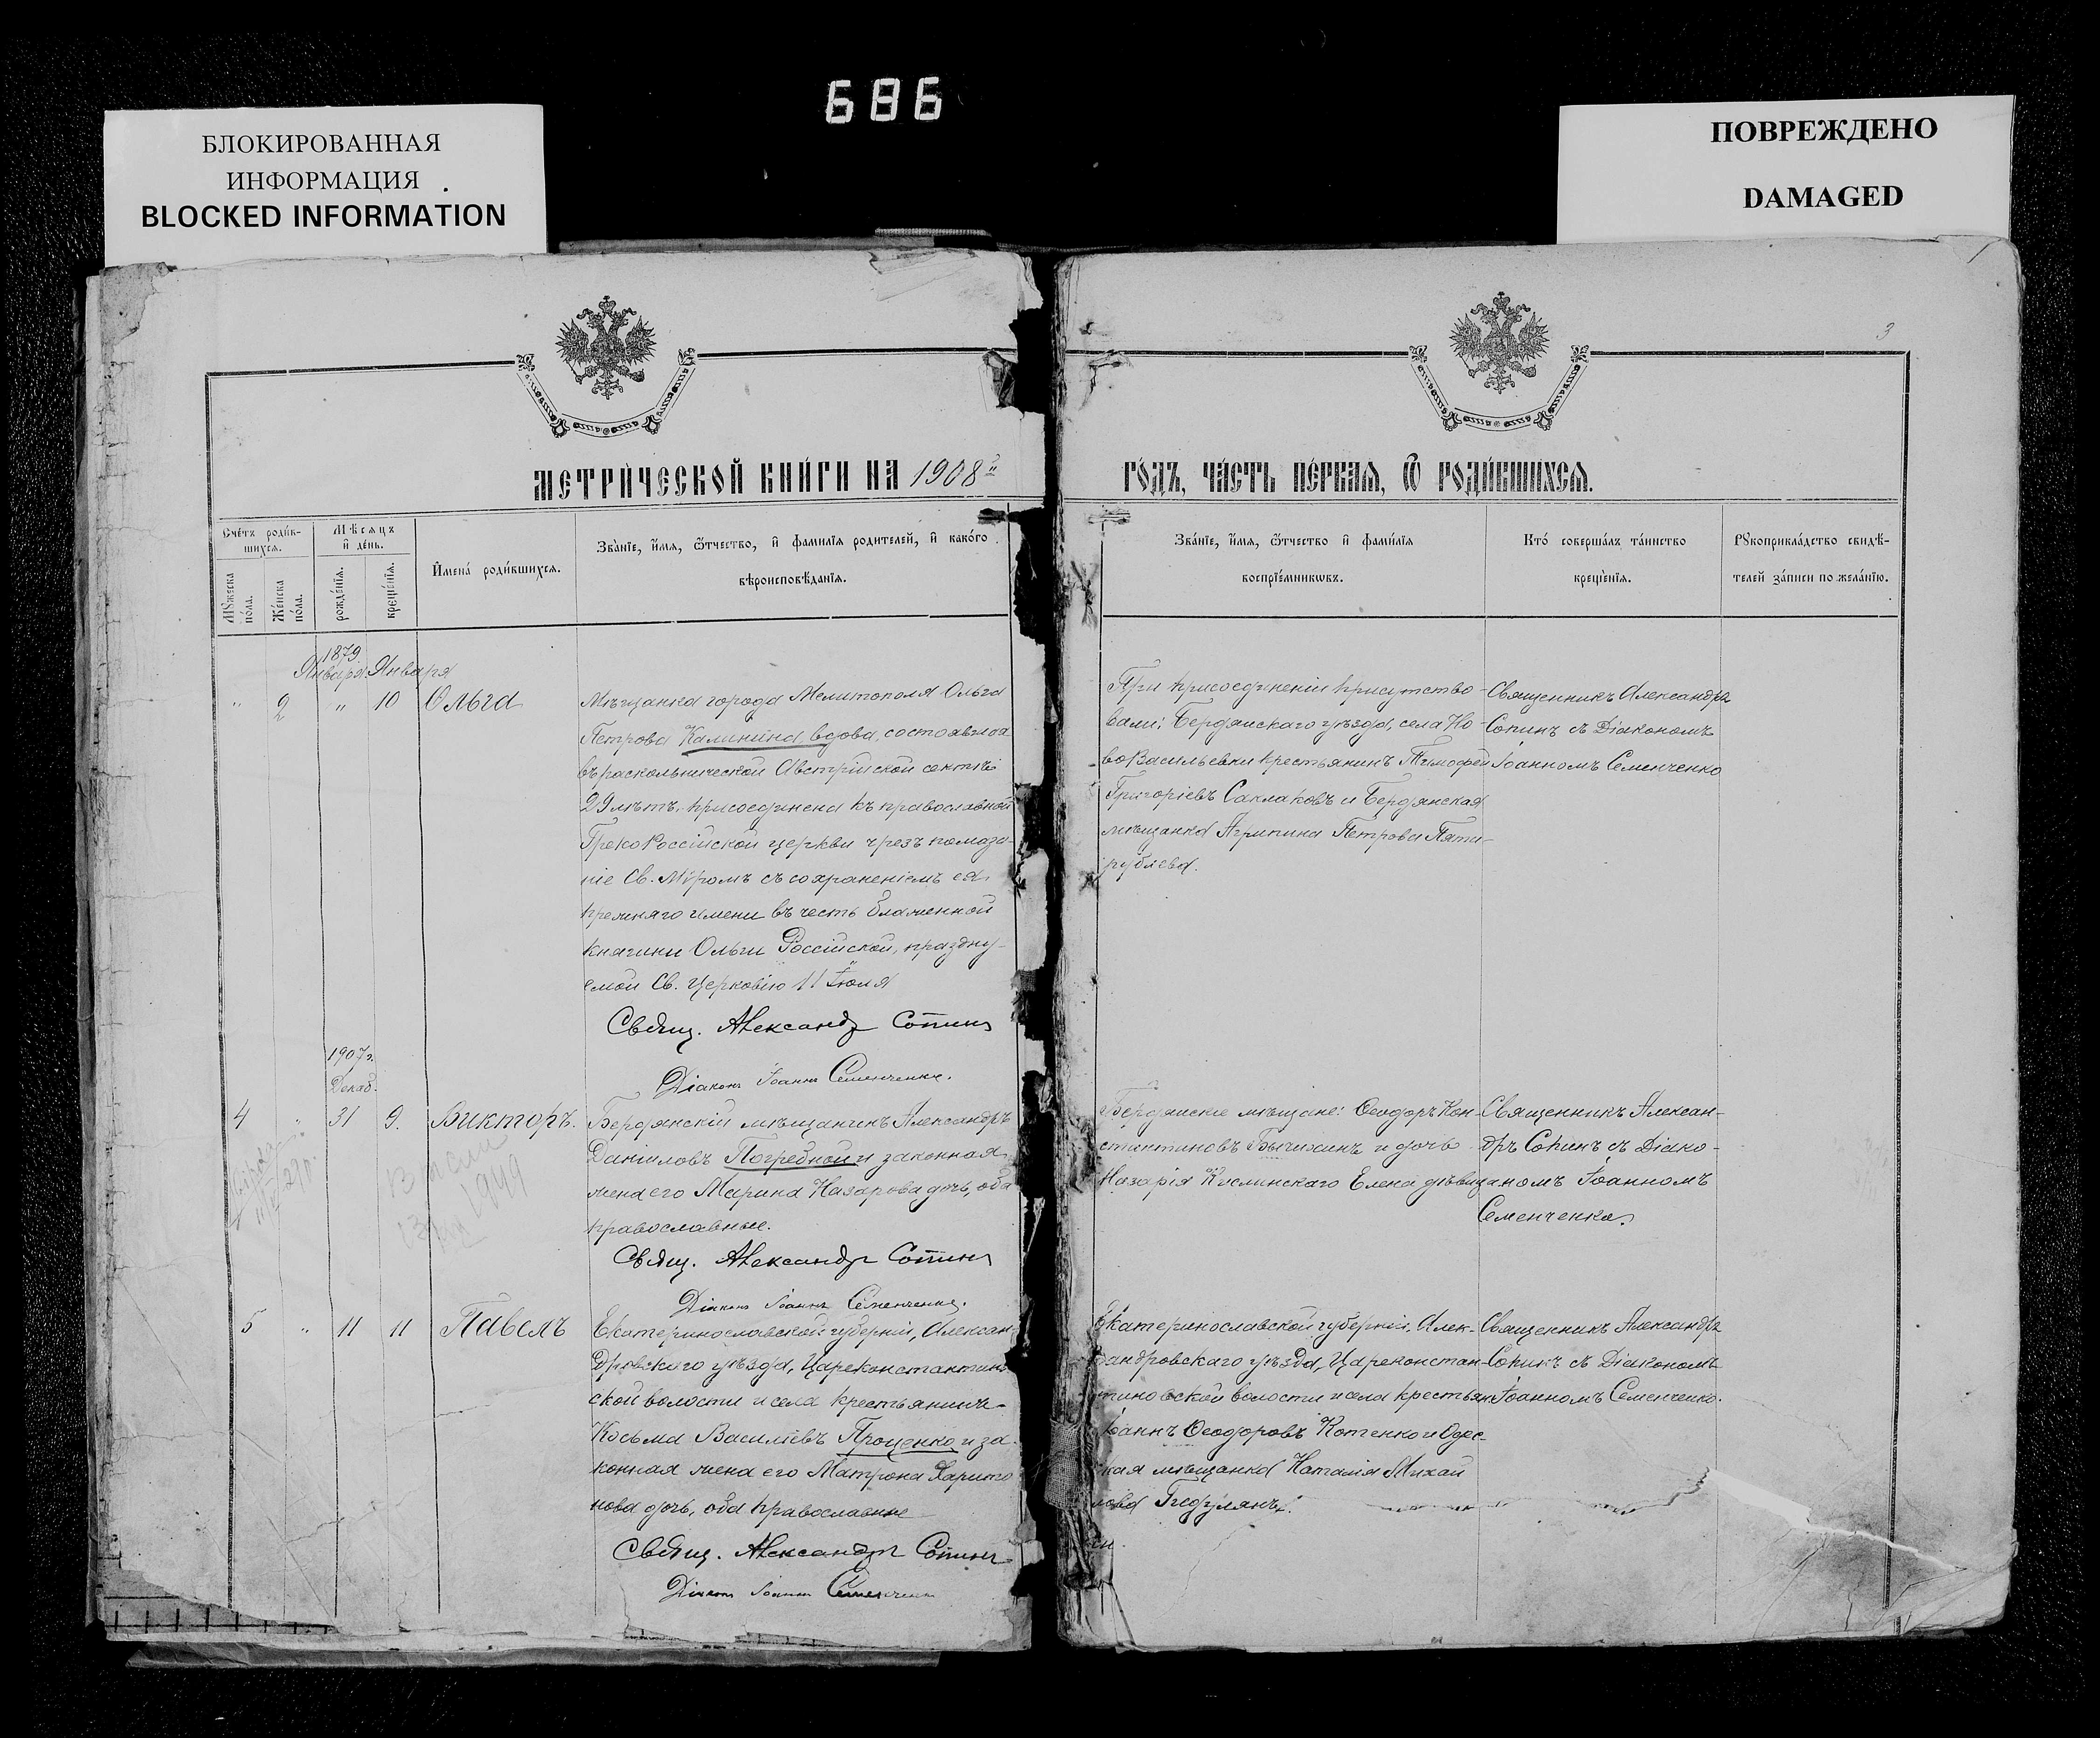 686
БЛОКИРОВАННАЯ
ИНФОРМАЦИЯ
BLOCKED INFORMATION
ПОВРЕЖДЕНО
DAMAGED
3
МЕТРИЧЕСКОЙ КНИГИ НА 1908й
ГОДЪ, ЧАСТЬ ПЕРВАЯ, Ѿ РОДИВШИХСЯ.
Счетъ родив-
шихся.
Мѣсяцъ
и день.
Мужеска
пола.
Женска
пола.
рожденія.
крещенія.
Имена родившихся.
Званіе, имя, ѿтчество, и фамилія родителей, и какого
вѣроисповѣданія.
Званіе, имя, ѿтчество и фамилія
воспріемниковъ.
Кто совершалъ таинство
крещенія.
Рукоприкладство свидѣ-
телей записи по желанію.
1879
Января Января
" 2 " 10 Ольга
Мѣщанка города Мелитополя Ольга
Петрова Калинина, вдова, состоявшая
въ раскольнической Австрійской сектѣ
29 лѣтъ, присоединена къ православной
Греко Россійской церкви чрезъ помаза-
ніе Св. Мѵромъ съ сохраненіемъ ея
прежняго имени въ честь блаженной
княгини Ольги Россійской, праздну-
емой Св. Церковію 11 Іюля
Свящ. Александръ Сопинъ
Діаконъ Іоаннъ Семенченко.
При присоединеніи присутство-
вали: Бердянскаго уѣзда, села Но-
воВасильевки крестьянинъ Тимофей
Григоріевъ Саклаковъ и Бердянская
мѣщанка Агрипина Петрова Пяти-
рублева.
Священникъ Александръ
Сопинъ съ Діакономъ
Іоанномъ Семенченко
1907 г.
Декаб.
4 " 31 9. Викторъ.
Бердянскій мѣщанинъ Александръ
Даніиловъ Погребной и законная
жена его Марина Назарова дочь, оба
православные.
Свящ. Александръ Сопинъ
Діаконъ Іоаннъ Семенченко.
1949
Бердянскіе мѣщане: Ѳеодоръ Кон-
стантиновъ Бычихинъ и дочь
Назарія Кислинскаго Елена дѣвица
Священникъ Алексан-
дръ Сопинъ съ Діако-
номъ Іоанномъ
Семенченко.
5 " 11 11 Павелъ
Екатеринославской губерніи, Алексан-
дровскаго уѣзда, Цареконстантинов
ской волости и села крестьянинъ
Косьма Василіевъ Проценко и за-
конная жена его Матрона Харито
нова дочь, оба православные
Свящ. Александръ Сопинъ
Діаконъ Іоаннъ Семенченко
Екатеринославской губерніи, Алек-
сандровскаго уѣзда, Цареконстан-
тиновской волости и села крестьян.
Іоаннъ Ѳеодоровъ Котенко и Одес-
ская мѣщанка Наталія Михай
лова
Священникъ Александръ
Сопинъ съ Діакономъ
Іоанномъ Семенченко.